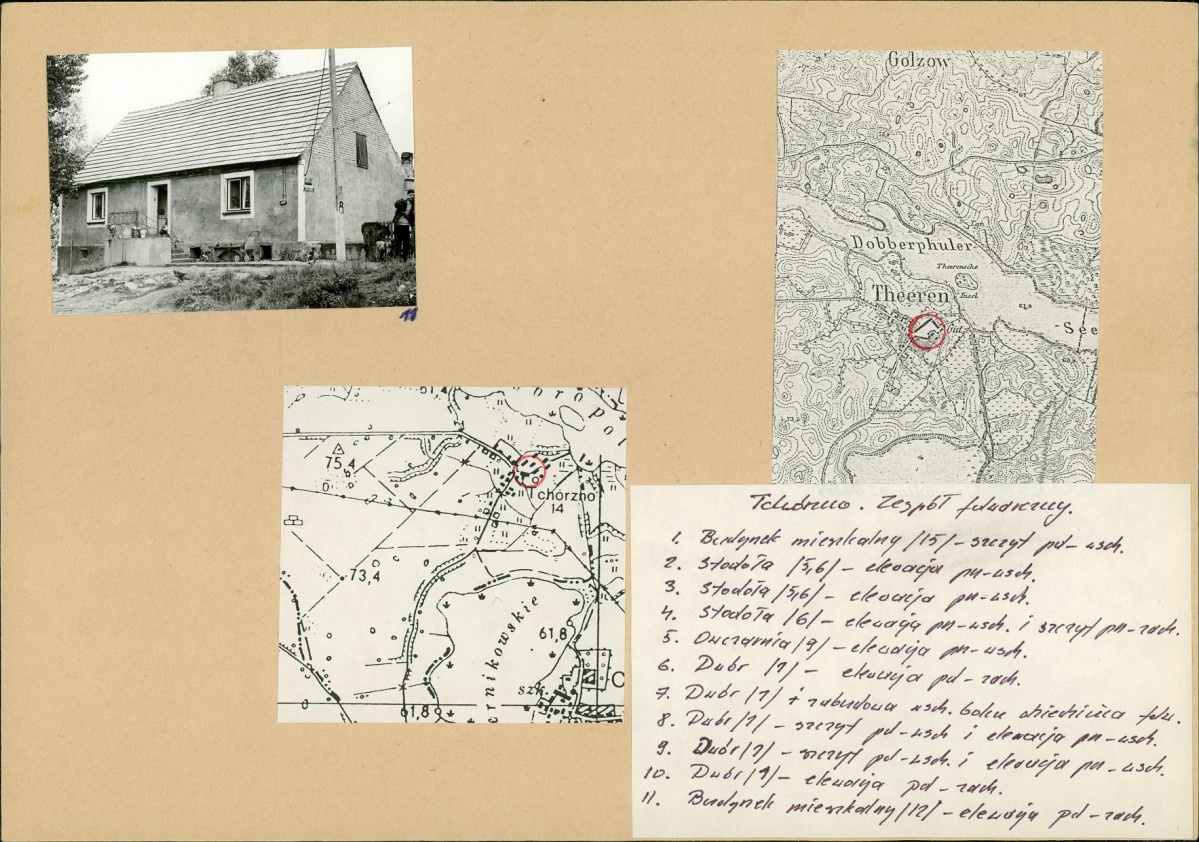 11
Golzow
Dobberphuler
Theerensche
Insel
Theeren
Gut
See
61,4
75,4
Tchórzno
14
73,4
61,8
ernikowskie
szk.
61,8
Tchórzno. Zespół folwarczny.
1. Budynek mieszkalny /15/ – szczyt pd-wsch.
2. Stodoła /5,6/ – elewacja pn-wsch.
3. Stodoła /5,6/ – elewacja pn-wsch.
4. Stodoła /6/ – elewacja pn-wsch. i szczyt pn-zach.
5. Owczarnia /9/ – elewacja pn-wsch.
6. Dwór /1/ – elewacja pd-zach.
7. Dwór /1/ i zabudowa wsch. boku dziedzińca folw.
8. Dwór /1/ – szczyt pd-wsch i elewacja pn-wsch.
9. Dwór /1/ – szczyt pd-wsch. i elewacja pn-wsch.
10. Dwór /1/ – elewacja pd-zach.
11. Budynek mieszkalny /12/ – elewacja pd-zach.